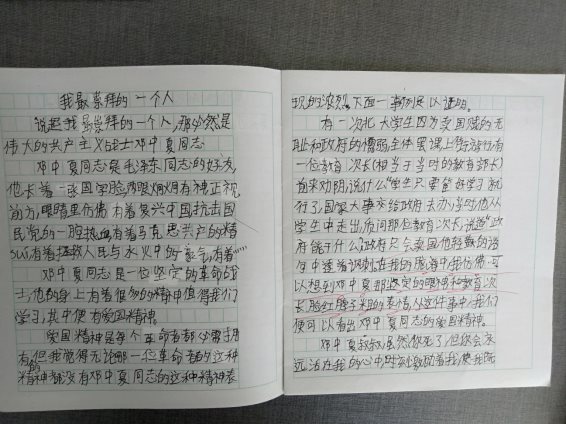 我最崇拜的一个人
说起我最崇拜的一个人,那必然是
伟大的共产主义战士邓中夏同志
邓中夏同志是毛泽东同志的好友,
他长着一张国字脸,两眼炯炯有神正视
前方,眼睛里仿佛有着复兴中国,抗击国
民党的一腔热血有着马克思共产的精
有着拯救人民与水火中的豪气,有着……
邓中夏同志是一位坚定的革命战
士,他的身上有着很多的精神值得我们
学习,其中便有爱国精神。
爱国精神是每个革命者都必需拥
有,但我觉得无论哪一位革命者的这种
精神都没有邓中夏同志的这种精神表
现的浓烈。下面一事例足以证明。
有一次北大学生四方卖国贼的无
耻和政府的懦弱,全体罢课上街游行有
一位教育次长(相当于当时的教育部长)
前来劝阴,说什么"学生只要管好学习就
行了,国家大事交给政府去办,当时他从
学生中走出,质问那位教育次长,说道"政
府能干什么?政府只会卖国他轻鄙的语
句中透着讽刺在我的脑海中我仿佛可
以想到邓中夏那坚定的眼神和教育次
长脸红脖子粗的表情从这件事中,我们
便可以看出邓中夏同志的爱国精神。
邓中夏叔叔虽然你死了但您会永
远活在我的心中,时刻激励着我,使我既